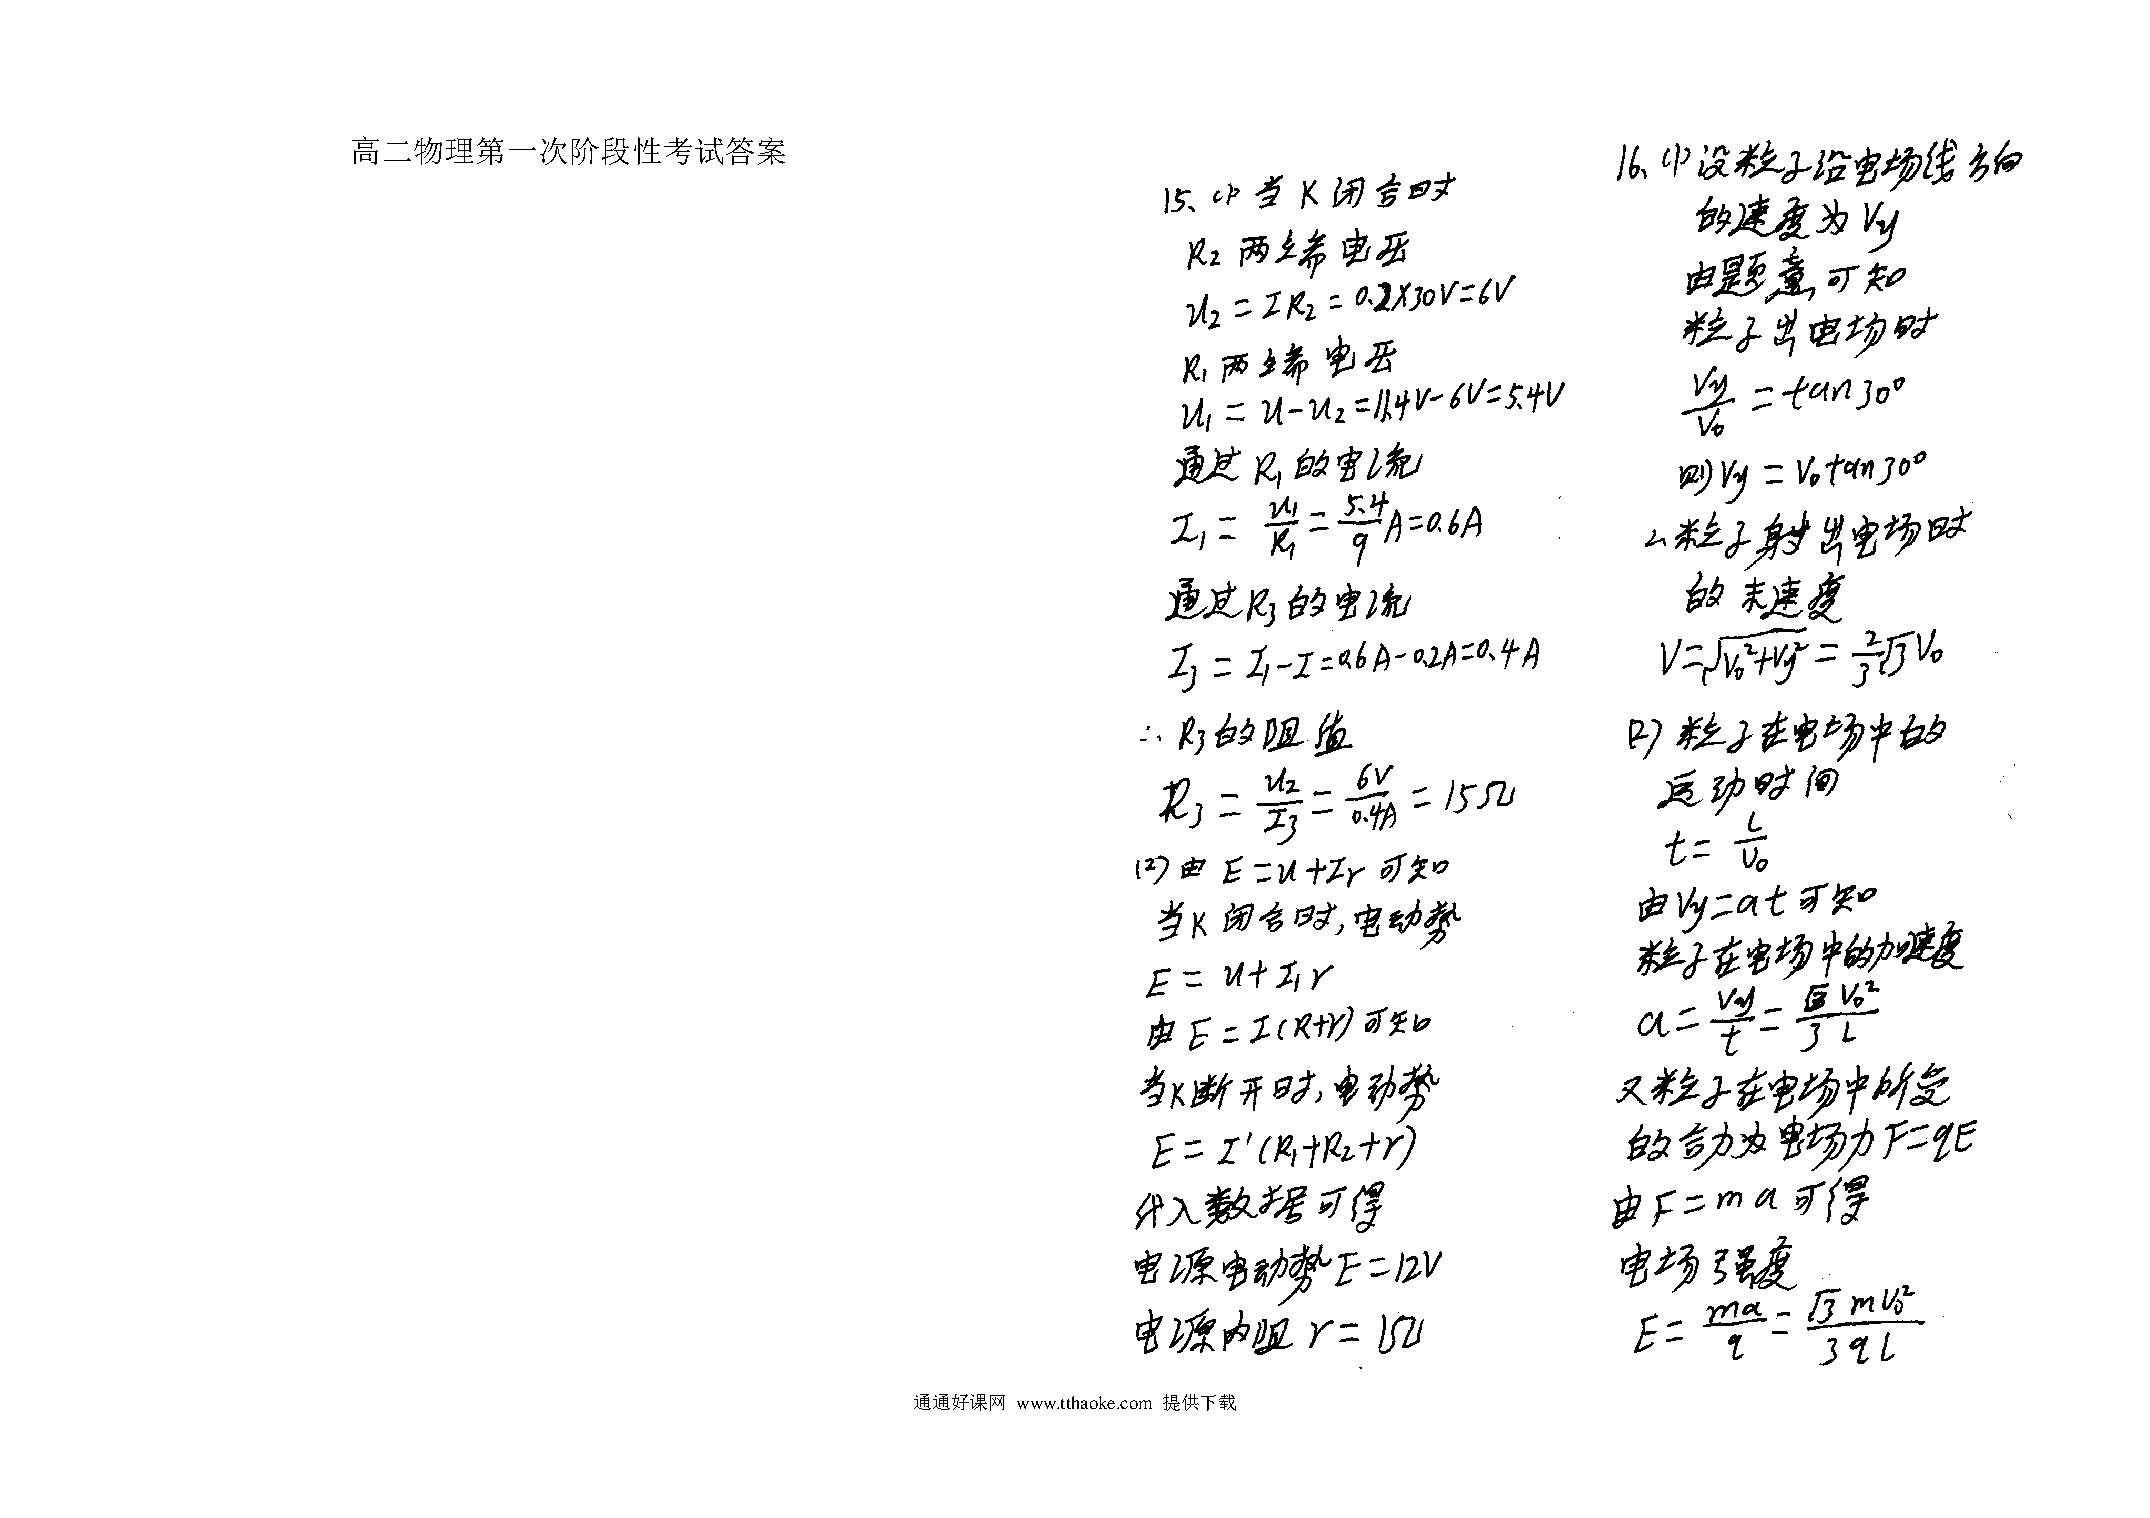 高二物理第一次阶段性考试答案
15、(1) 当 K 闭合时
R₂ 两端电压
U₂ = IR₂ = 0.2×30V = 6V
R₁ 两端电压
U₁ = U - U₂ = 11.4V - 6V = 5.4V
通过 R₁ 的电流
I₁ = U₁/R₁ = 5.4/9 A = 0.6A
通过 R₃ 的电流
I₃ = I₁ - I = 0.6A - 0.2A = 0.4A
∴ R₃ 的阻值
R₃ = U₂/I₃ = 6V/0.4A = 15Ω
(2) 由 E = U + Ir 可知
当 K 闭合时, 电动势
E = U + I₁r
由 E = I(R+r) 可知
当 K 断开时, 电动势
E = I′(R₁+R₂+r)
代入数据可得
电源电动势 E = 12V
电源内阻 r = 1Ω
16、(1) 设粒子沿电场线方向
的速度为 Vy
由题意, 可知
粒子出电场时
Vy/V₀ = tan30°
则 Vy = V₀tan30°
∴ 粒子射出电场时
的末速度
V = √(V₀²+Vy²) = 2/3 √3 V₀
(2) 粒子在电场中的
运动时间
t = L/V₀
由 Vy = at 可知
粒子在电场中的加速度
a = Vy/t = √3 V₀²/3L
又粒子在电场中所受
的合力为电场力 F = qE
由 F = ma 可得
电场强度
E = ma/q = √3 mV₀²/3qL
通通好课网 www.tthaoke.com 提供下载